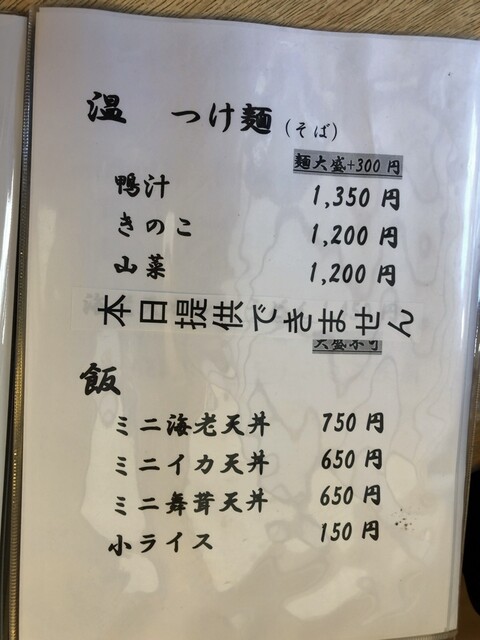 温 つけ麺(そば)
麺大盛+300円
鴨汁 1,350 円
きのこ 1,200 円
山菜 1,200 円
本日提供できません
大盛不可
飯
ミニ海老天丼 750 円
ミニイカ天丼 650 円
ミニ舞茸天丼 650 円
小ライス 150 円